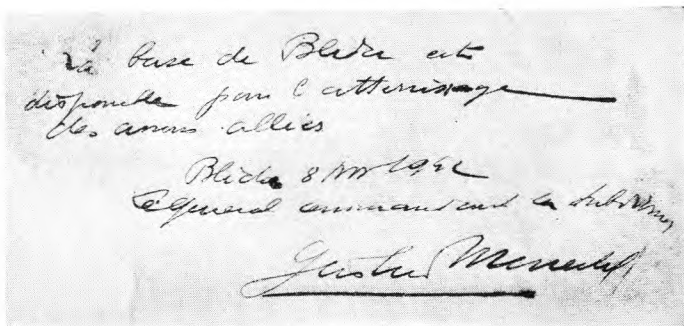 La base de Blida est
disponible pour l'atterrissage
des avions alliés
Blida 8 Nov 1942
Le général commandant la subdivision